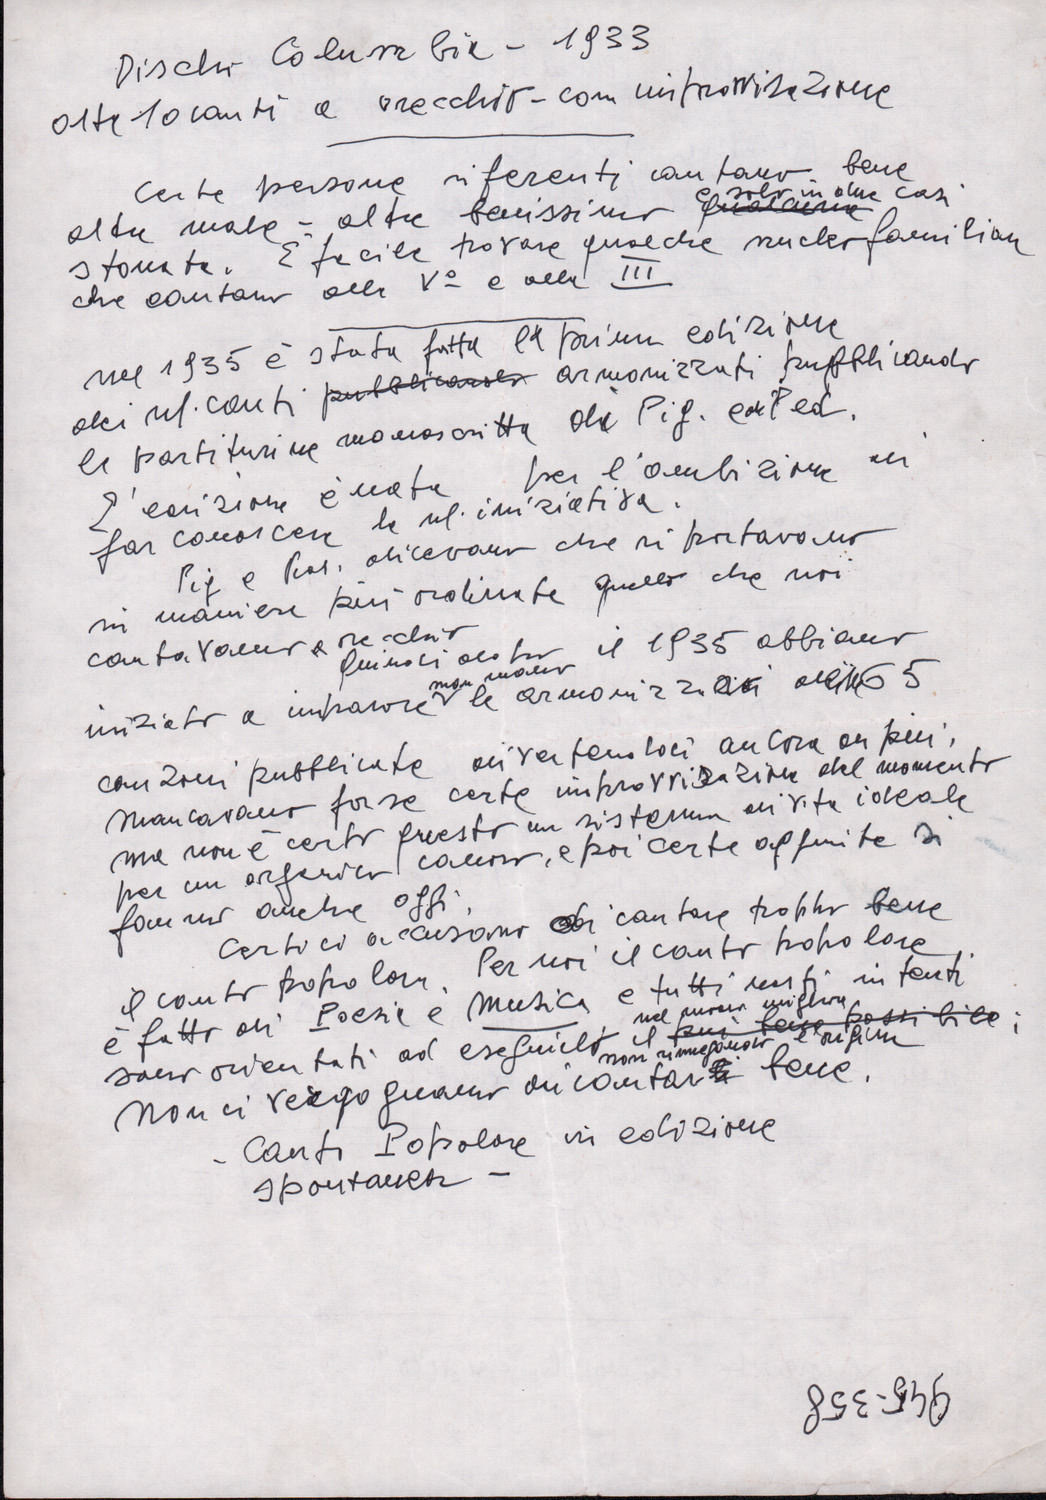 Dischi Columbia - 1933
oltre 10 canti a orecchio - con improvvisazione
Certe persone riferenti cantano bene
altre male - altre benissimo e solo in due casi
stonate. È facile trovare qualche nucleo familiare
che cantano alla Vª e alla III
nel 1935 è stata fatta la prima edizione
dei ns. canti pubblicando armonizzati pubblicando
le partiturine manoscritte da Pig. e Ped.
L'edizione è nata per l'ambizione di
far conoscere la ns. iniziativa.
Pig e dicevano che riportavano
in maniera più ordinata quello che noi
cantavamo a orecchio
Quindi dopo il 1935 abbiamo
iniziato a imparare man mano le armonizzazioni 65
canzoni pubblicate divertendoci ancora di più,
Mancavano forse certe improvvisazione del momento
ma non è certo questo un sistema di vita ideale
per un organico canoro, e poi certe aggiunte si
fanno anche oggi.
Certi ci accusano di cantare troppo bene
il canto popolare. Per noi il canto popolare
è fatto di Poesia e Musica e tutti nasti intenti
sono orientati ad eseguirlo nel modo migliore il più bene possibile;
non rinnegando l'origine
Non ci vergognamo di cantare bene.
- Canto Popolare in edizione
spontanea -
945-358